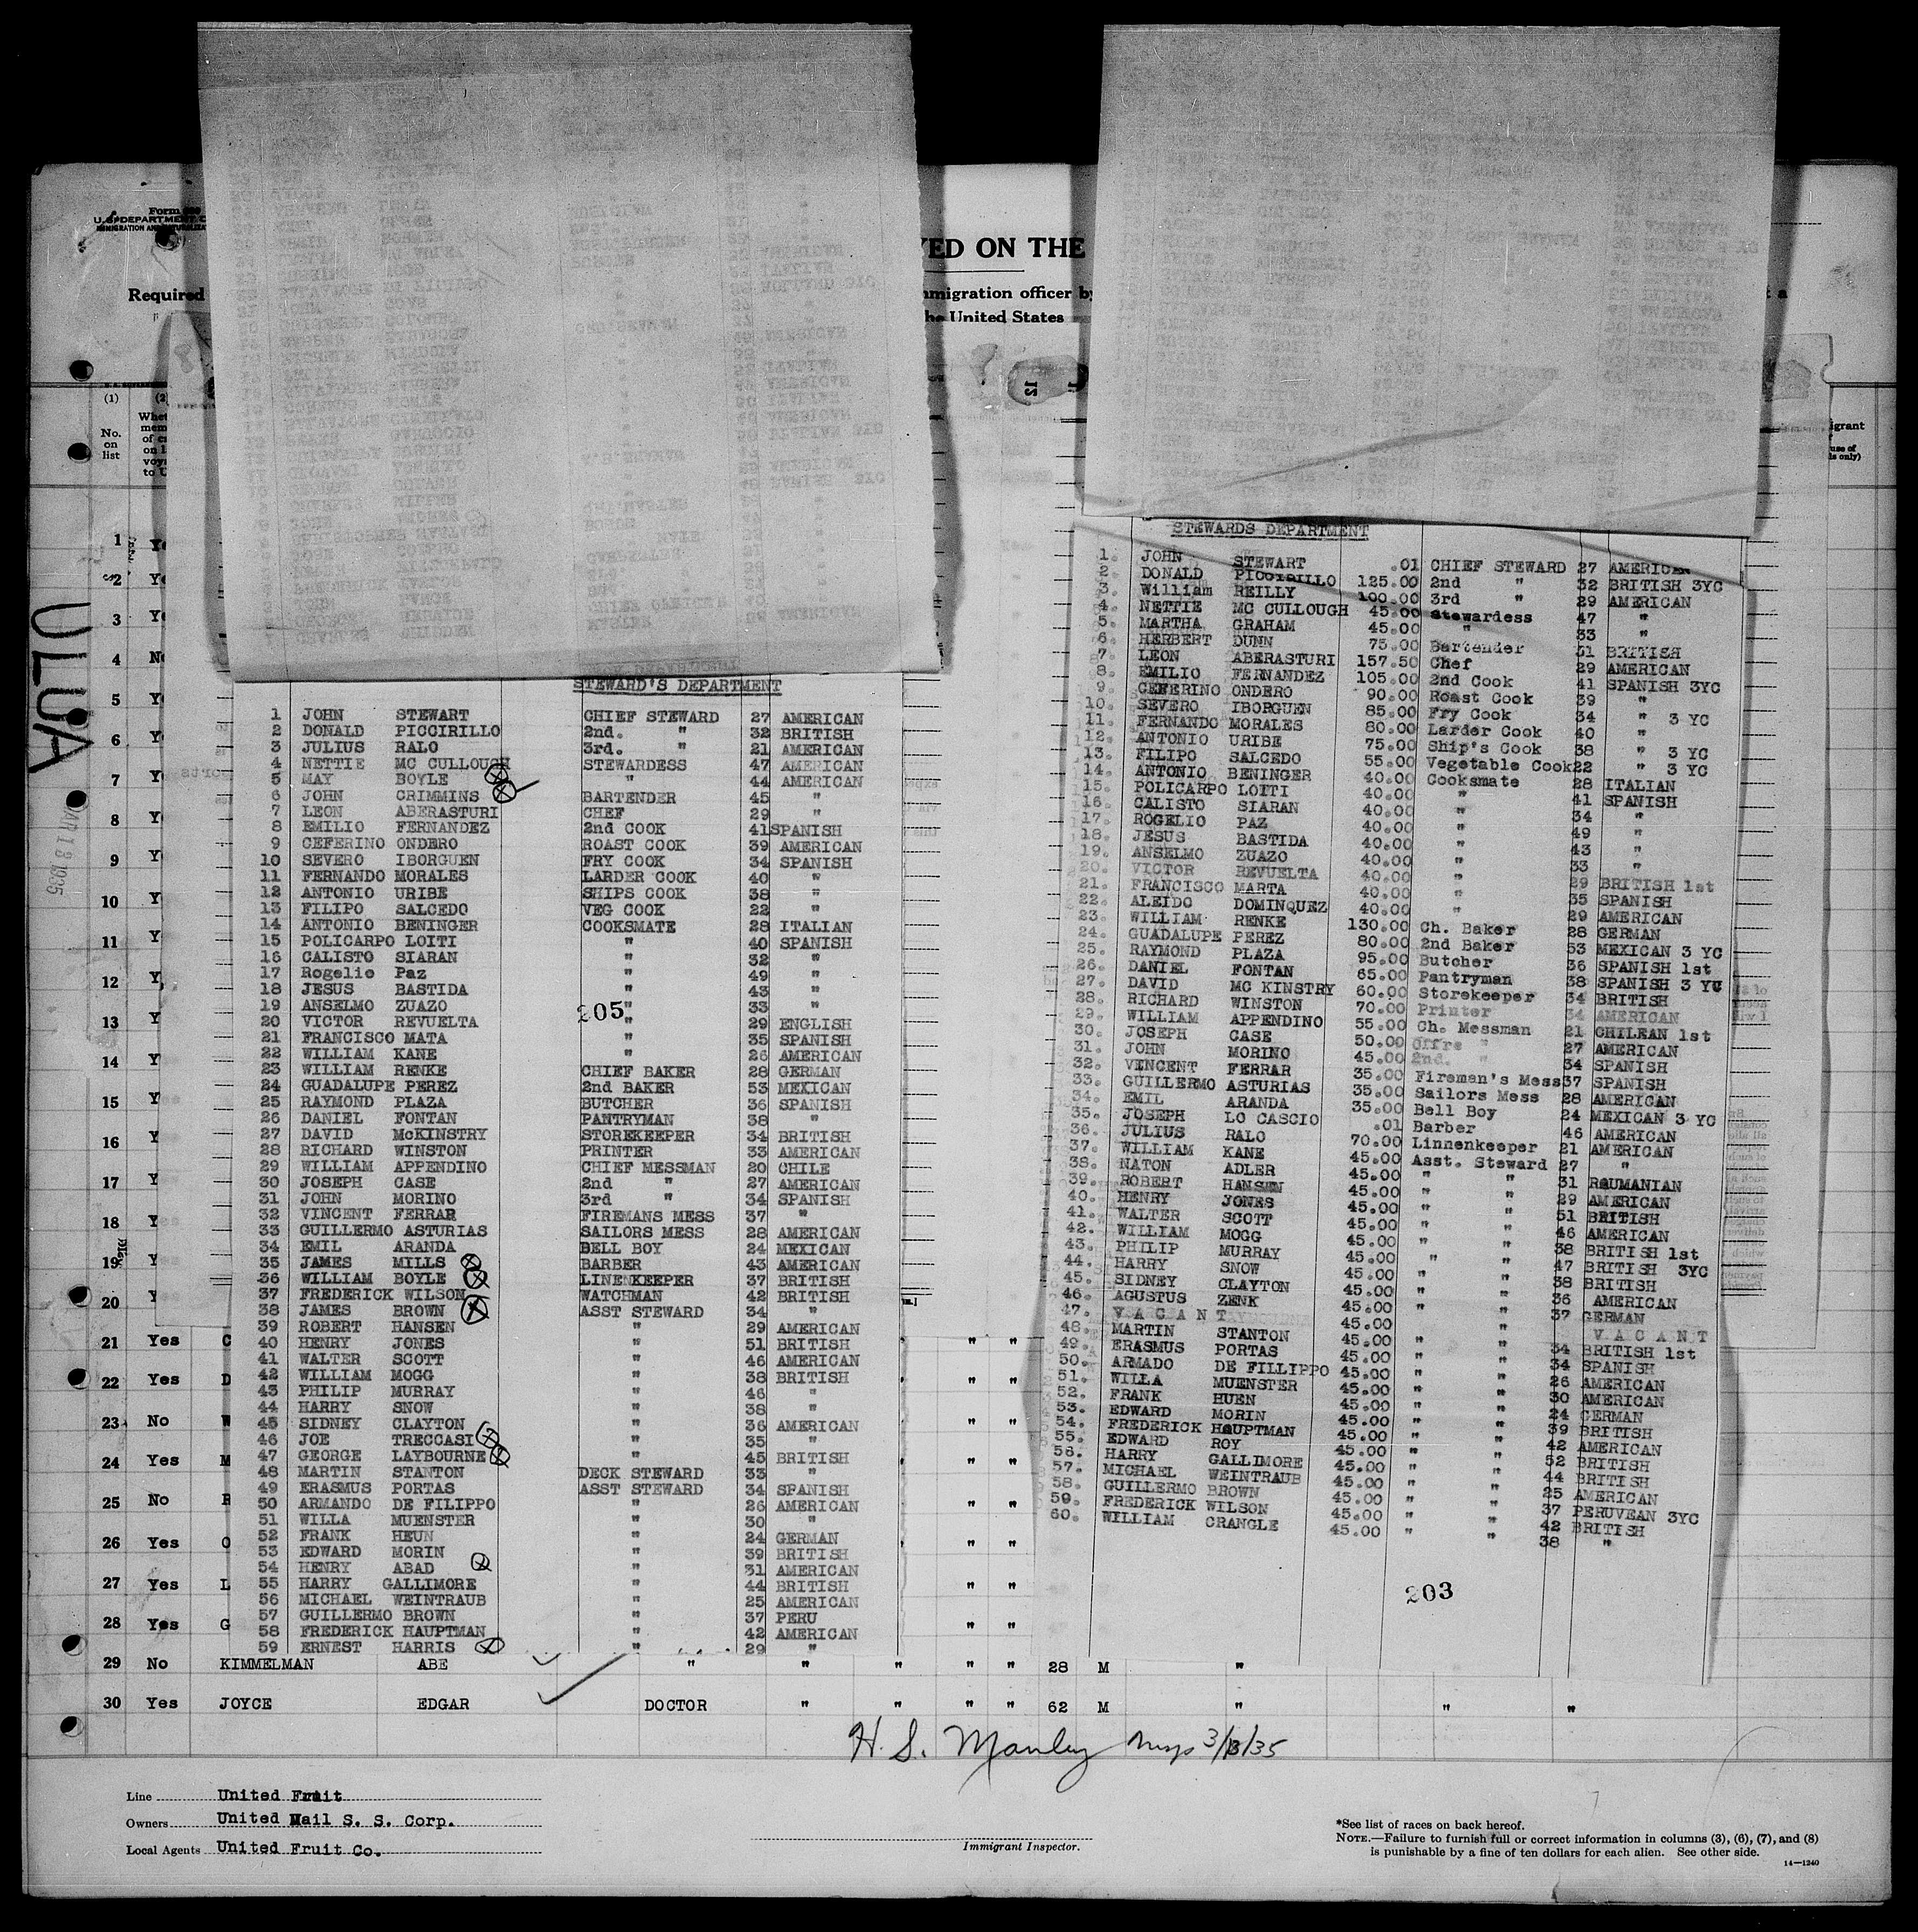 Form
U. S. DEPARTMENT
Required
YED ON THE
mmigration officer by
the United States
(1)
No.
on
list
ULUA
MAR 13 1935
12
STEWARD'S DEPARTMENT
1 JOHN STEWART CHIEF STEWARD 27 AMERICAN
2 DONALD PICCIRILLO 2nd. " 32 BRITISH
3 JULIUS RALO 3rd. " 21 AMERICAN
4 NETTIE MC CULLOUGH STEWARDESS 47 AMERICAN
5 MAY BOYLE " 44 AMERICAN
6 JOHN CRIMMINS BARTENDER 45 "
7 LEON ABERASTURI CHEF 29 "
8 EMILIO FERNANDEZ 2nd COOK 41 SPANISH
9 CEFERINO ONDERO ROAST COOK 39 AMERICAN
10 SEVERO IBORGUEN FRY COOK 34 SPANISH
11 FERNANDO MORALES LARDER COOK 40 "
12 ANTONIO URIBE SHIPS COOK 38 "
13 FILIPO SALCEDO VEG COOK 22 "
14 ANTONIO BENINGER COOKSMATE 28 ITALIAN
15 POLICARPO LOITI " 40 SPANISH
16 CALISTO SIARAN " 32 "
17 Rogelio Paz " 49 "
18 JESUS BASTIDA " 43 "
19 ANSELMO ZUAZO " 33 "
205
20 VICTOR REVUELTA " 29 ENGLISH
21 FRANCISCO MATA " 35 SPANISH
22 WILLIAM KANE " 26 AMERICAN
23 WILLIAM RENKE CHIEF BAKER 28 GERMAN
24 GUADALUPE PEREZ 2nd BAKER 53 MEXICAN
25 RAYMOND PLAZA BUTCHER 36 SPANISH
26 DANIEL FONTAN PANTRYMAN 38 "
27 DAVID McKINSTRY STOREKEEPER 34 BRITISH
28 RICHARD WINSTON PRINTER 33 AMERICAN
29 WILLIAM APPENDINO CHIEF MESSMAN 20 CHILE
30 JOSEPH CASE 2nd " 27 AMERICAN
31 JOHN MORINO 3rd " 34 SPANISH
32 VINCENT FERRAR FIREMANS MESS 37 "
33 GUILLERMO ASTURIAS SAILORS MESS 28 AMERICAN
34 EMIL ARANDA BELL BOY 24 MEXICAN
35 JAMES MILLS BARBER 43 AMERICAN
36 WILLIAM BOYLE LINENKEEPER 37 BRITISH
37 FREDERICK WILSON WATCHMAN 42 BRITISH
38 JAMES BROWN ASST STEWARD 34 "
39 ROBERT HANSEN " 29 AMERICAN
40 HENRY JONES " 51 BRITISH
41 WALTER SCOTT " 46 AMERICAN
42 WILLIAM MOGG " 38 BRITISH
43 PHILIP MURRAY " 46 "
44 HARRY SNOW " 38 "
45 SIDNEY CLAYTON " 36 AMERICAN
46 JOE TRECCASI " 35 "
47 GEORGE LAYBOURNE " 45 BRITISH
48 MARTIN STANTON DECK STEWARD 33 "
49 ERASMUS PORTAS ASST STEWARD 34 SPANISH
50 ARMANDO DE FILIPPO " 26 AMERICAN
51 WILLA MUENSTER " 30 "
52 FRANK HEUN " 24 GERMAN
53 EDWARD MORIN " 39 BRITISH
54 HENRY ABAD " 31 AMERICAN
55 HARRY GALLIMORE " 44 BRITISH
56 MICHAEL WEINTRAUB " 25 AMERICAN
57 GUILLERMO BROWN " 37 PERU
58 FREDERICK HAUPTMAN " 42 AMERICAN
59 ERNEST HARRIS " 29 "
STEWARDS DEPARTMENT
1. JOHN STEWART .01 CHIEF STEWARD 27 AMERICAN
2. DONALD PICCIRILLO 125.00 2nd " 32 BRITISH 3YC
3. William REILLY 100.00 3rd " 29 AMERICAN
4. NETTIE MC CULLOUGH 45.00 Stewardess 47 "
5. MARTHA GRAHAM 45.00 " 33 "
6. HERBERT DUNN 75.00 Bartender 31 BRITISH
7. LEON ABERASTURI 157.50 Chef 29 AMERICAN
8. EMILIO FERNANDEZ 105.00 2nd Cook 41 SPANISH 3YC
9. CEFERINO ONDERO 90.00 Roast Cook 39 "
10. SEVERO IBORGUEN 85.00 Fry Cook 34 " 3 YC
11. FERNANDO MORALES 80.00 Larder Cook 40 "
12. ANTONIO URIBE 75.00 Ship's Cook 38 " 3 YC
13. FILIPO SALCEDO 55.00 Vegetable Cook 22 " 3 YC
14. ANTONIO BENINGER 40.00 Cooksmate 28 ITALIAN
15. POLICARPO LOITI 40.00 " 41 SPANISH
16. CALISTO SIARAN 40.00 " 34 "
17. ROGELIO PAZ 40.00 " 49 "
18. JESUS BASTIDA 40.00 " 43 "
19. ANSELMO ZUAZO 40.00 " 33 "
20. VICTOR REVUELTA 40.00 " 29 BRITISH 1st
21. FRANCISCO MARTA 40.00 " 35 SPANISH
22. ALEIDO DOMINQUEZ 40.00 " 29 AMERICAN
23. WILLIAM RENKE 130.00 Ch. Baker 28 GERMAN
24. GUADALUPE PEREZ 80.00 2nd Baker 53 MEXICAN 3 YC
25. RAYMOND PLAZA 95.00 Butcher 36 SPANISH 1st
26. DANIEL FONTAN 65.00 Pantryman 38 SPANISH 3 YC
27. DAVID MC KINSTRY 60.00 Storekeeper 34 BRITISH
28. RICHARD WINSTON 70.00 Printer 34 AMERICAN
29. WILLIAM APPENDINO 55.00 Ch. Messman 21 CHILEAN 1st
30. JOSEPH CASE 50.00 Offrs " 27 AMERICAN
31. JOHN MORINO 45.00 2nd. " 34 SPANISH
32. VINCENT FERRAR 35.00 Fireman's Mess 37 SPANISH
33. GUILLERMO ASTURIAS 35.00 Sailors Mess 28 AMERICAN
34. EMIL ARANDA 35.00 Bell Boy 24 MEXICAN 3 YC
35. JOSEPH LO CASCIO .01 Barber 46 AMERICAN
36. JULIUS RALO 70.00 Linnenkeeper 21 AMERICAN
37. WILLIAM KANE 45.00 Asst. Steward 27 "
38. NATON ADLER 45.00 " " 31 ROUMANIAN
39. ROBERT HANSEN 45.00 " " 29 AMERICAN
40. HENRY JONES 45.00 " " 51 BRITISH
41. WALTER SCOTT 45.00 " " 46 AMERICAN
42. WILLIAM MOGG 45.00 " " 38 BRITISH 1st
43. PHILIP MURRAY 45.00 " " 47 BRITISH 3YC
44. HARRY SNOW 45.00 " " 38 BRITISH
45. SIDNEY CLAYTON 45.00 " " 36 AMERICAN
46. AGUSTUS ZENK 45.00 " " 37 GERMAN
47. V A C A N T 45.00 " V A C A N T
48. MARTIN STANTON 45.00 " " 34 BRITISH 1st
49. ERASMUS PORTAS 45.00 " " 34 SPANISH
50. ARMADO DE FILLIPPO 45.00 " " 26 AMERICAN
51. WILLA MUENSTER 45.00 " " 30 AMERICAN
52. FRANK HUEN 45.00 " " 24 GERMAN
53. EDWARD MORIN 45.00 " " 39 BRITISH
54. FREDERICK HAUPTMAN 45.00 " " 42 AMERICAN
55. EDWARD ROY 45.00 " " 52 BRITISH
56. HARRY GALLIMORE 45.00 " " 44 BRITISH
57. MICHAEL WEINTRAUB 45.00 " " 25 AMERICAN
58. GUILLERMO BROWN 45.00 " " 37 PERUVEAN 3YC
59. FREDERICK WILSON 45.00 " " 42 BRITISH
60. WILLIAM CRANGLE 45.00 " " 38 "
203
1
2
3
4
5
6
7
8
9
10
11
12
13
14
15
16
17
18
19
20
21 Yes C " "
22 Yes D " "
23 No W " "
24 Yes M " "
25 No R " "
26 Yes O " "
27 Yes L " "
28 Yes G " "
29 No KIMMELMAN ABE " " " " " 28 M "
30 Yes JOYCE EDGAR DOCTOR " " " " 62 M " " "
H. S. Manley 3/13/35
Line United Fruit
Owners United Mail S. S. Corp.
Local Agents United Fruit Co.
Immigrant Inspector.
*See list of races on back hereof.
NOTE.—Failure to furnish full or correct information in columns (3), (6), (7), and (8)
is punishable by a fine of ten dollars for each alien. See other side.
14—1240